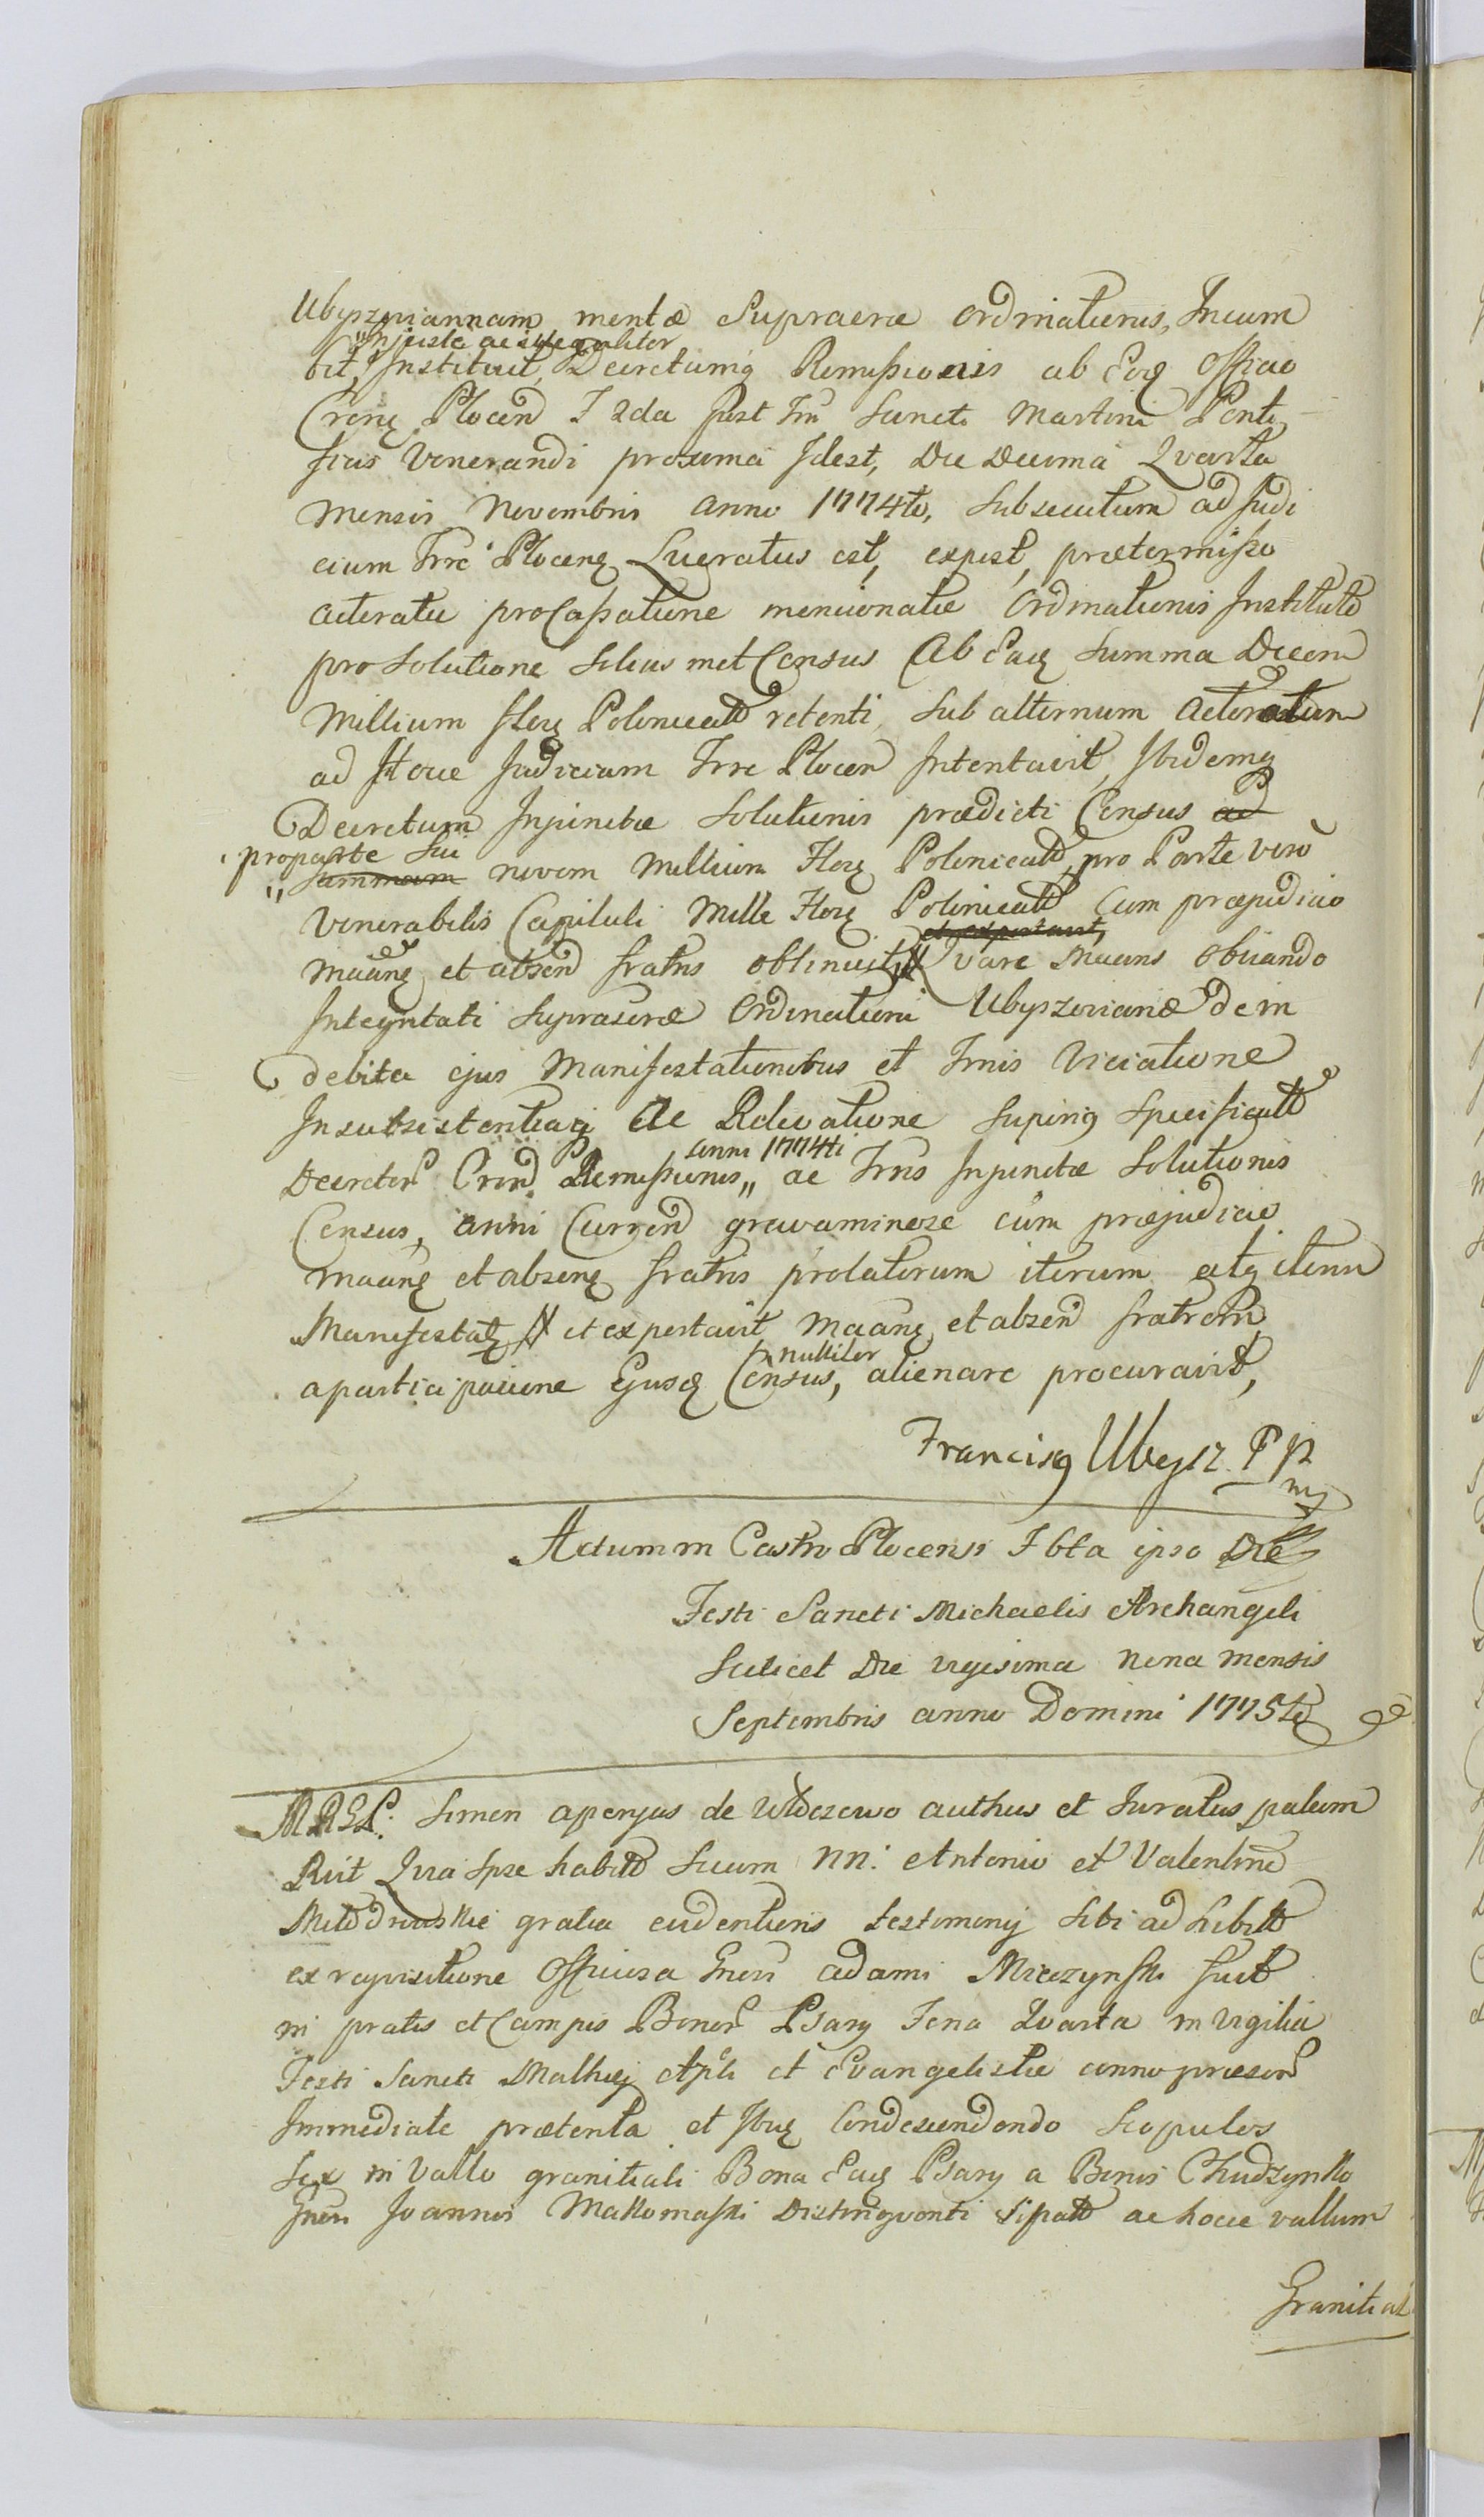 Ubyszoviannam mentœ Supraeræ ordinationis, Incum
Injuste ac illegaliter
bit, Instituit, Decretumq Remissionis ab Eoq Officio
Crenq Plocen F 2da post Fm Sancti Martini Ponti-
ficis Venerandi proxima Idest, Die Decima Qvarta
Mensis Novembris anno 1774to, Subsecutum ad Judi
cium Trre Plocenq Lucratus est, expost, prætermisso
acteratu pro Cassatione mencionatæ Ordinationis Institute
pro Solutione Solius met Census Ab Eaq Summa Decem
Millium floq Polonicall retenti, Sub alternum Acteratum
ad Hocce Judicium Trre Plocen Intentavit, Ibidemq
Decretum Injunctæ Solutionis prædicti Census ad
pro parte Sui
Summam novem Millium Floq Polonicall, pro Parte verò
Venerabilis Capituli Mille Floq Polonicall Cum præjudicio
et expectavit,
Maanq et absen fratris obtinuit, Qvare Maans Obviando
Integritati Suprascræ Ordinationi Ubyszovianæ de in
debita ejus Manifestationibus et Trnis Viciatione
Insubsistentiaq Ac Relevatione Superiq Specificall
Anni 1774ti
Decretor Cren Remissionis, ac Trris Injunctæ Solutionis
Census, anni Curren gravaminose cum præjudicio
Maanq et absenq fratris prolatorum iterum atq iterum
Manifestatq et expectavit Maanq et absen fratrem
nulliter
a participacione Ejusq Census, alienare procuravit,
Francisq Ubysz P p
mp
Actum in Castro Plocensi F 6ta ipso Die
Festi Sancti Michaelis Archangeli
Scilicet Die vigesima nona mensis
Septembris anno Domini 1775to
MRGL. Simon aperjas de Wloczewo authus et Juratus palam
Rvit Qvia Ipse habitt Secum NN: Antonio et Valentino
Mlodzianskie gratia evidentioris testimonij Sibi adhibitt
ex reqvisitione Officiosa Gnesi Adami Mieczynski fuit
in pratis et Campis Bonor Psary Feria Qvarta in vigilia
Festi Sancti Mathej Apli et Evangelistæ anno præsen
Immediate prætenta et Ibiq Condescendendo Scopulos
Sex in Vallo granitiali Bona Eaq Psary a Bonis Chudzynko
Gnesi Joannis Makomaski Distingventi Sipatt ac hocce vallum
Granitial